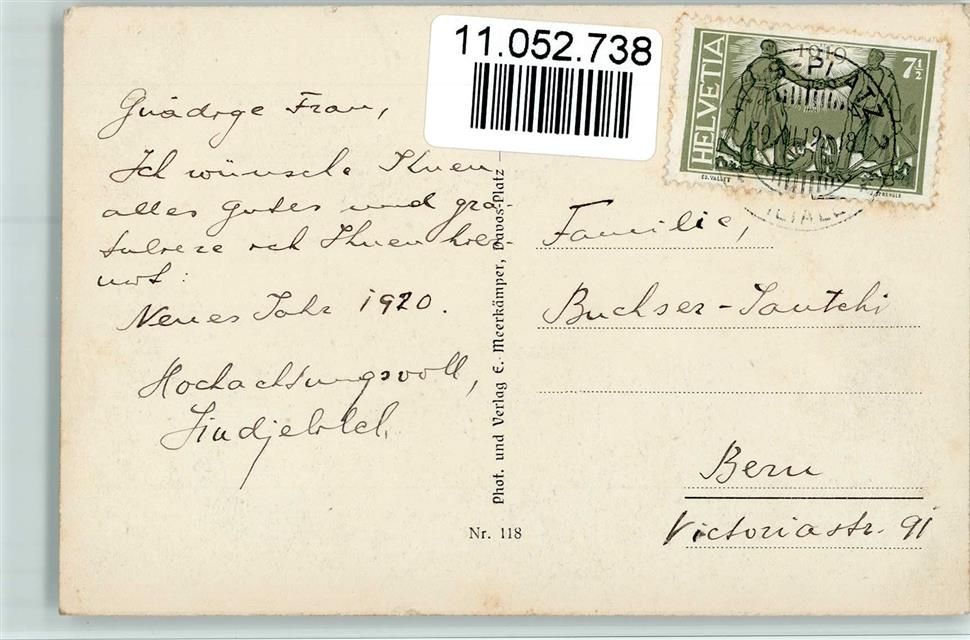 11.052.738
HELVETIA
1919
7½
ED. VALLET
Gnädige Frau,
Ich wünsche Ihnen
alles Gutes und gra-
tuliere ich Ihnen hier-
mit:
Neues Jahr 1920.
Hochachtungsvoll,
Phot. und Verlag E. Meerkämper, Davos-Platz
Nr. 118
Familie,
Buchser-
Bern
Victoriastr. 91